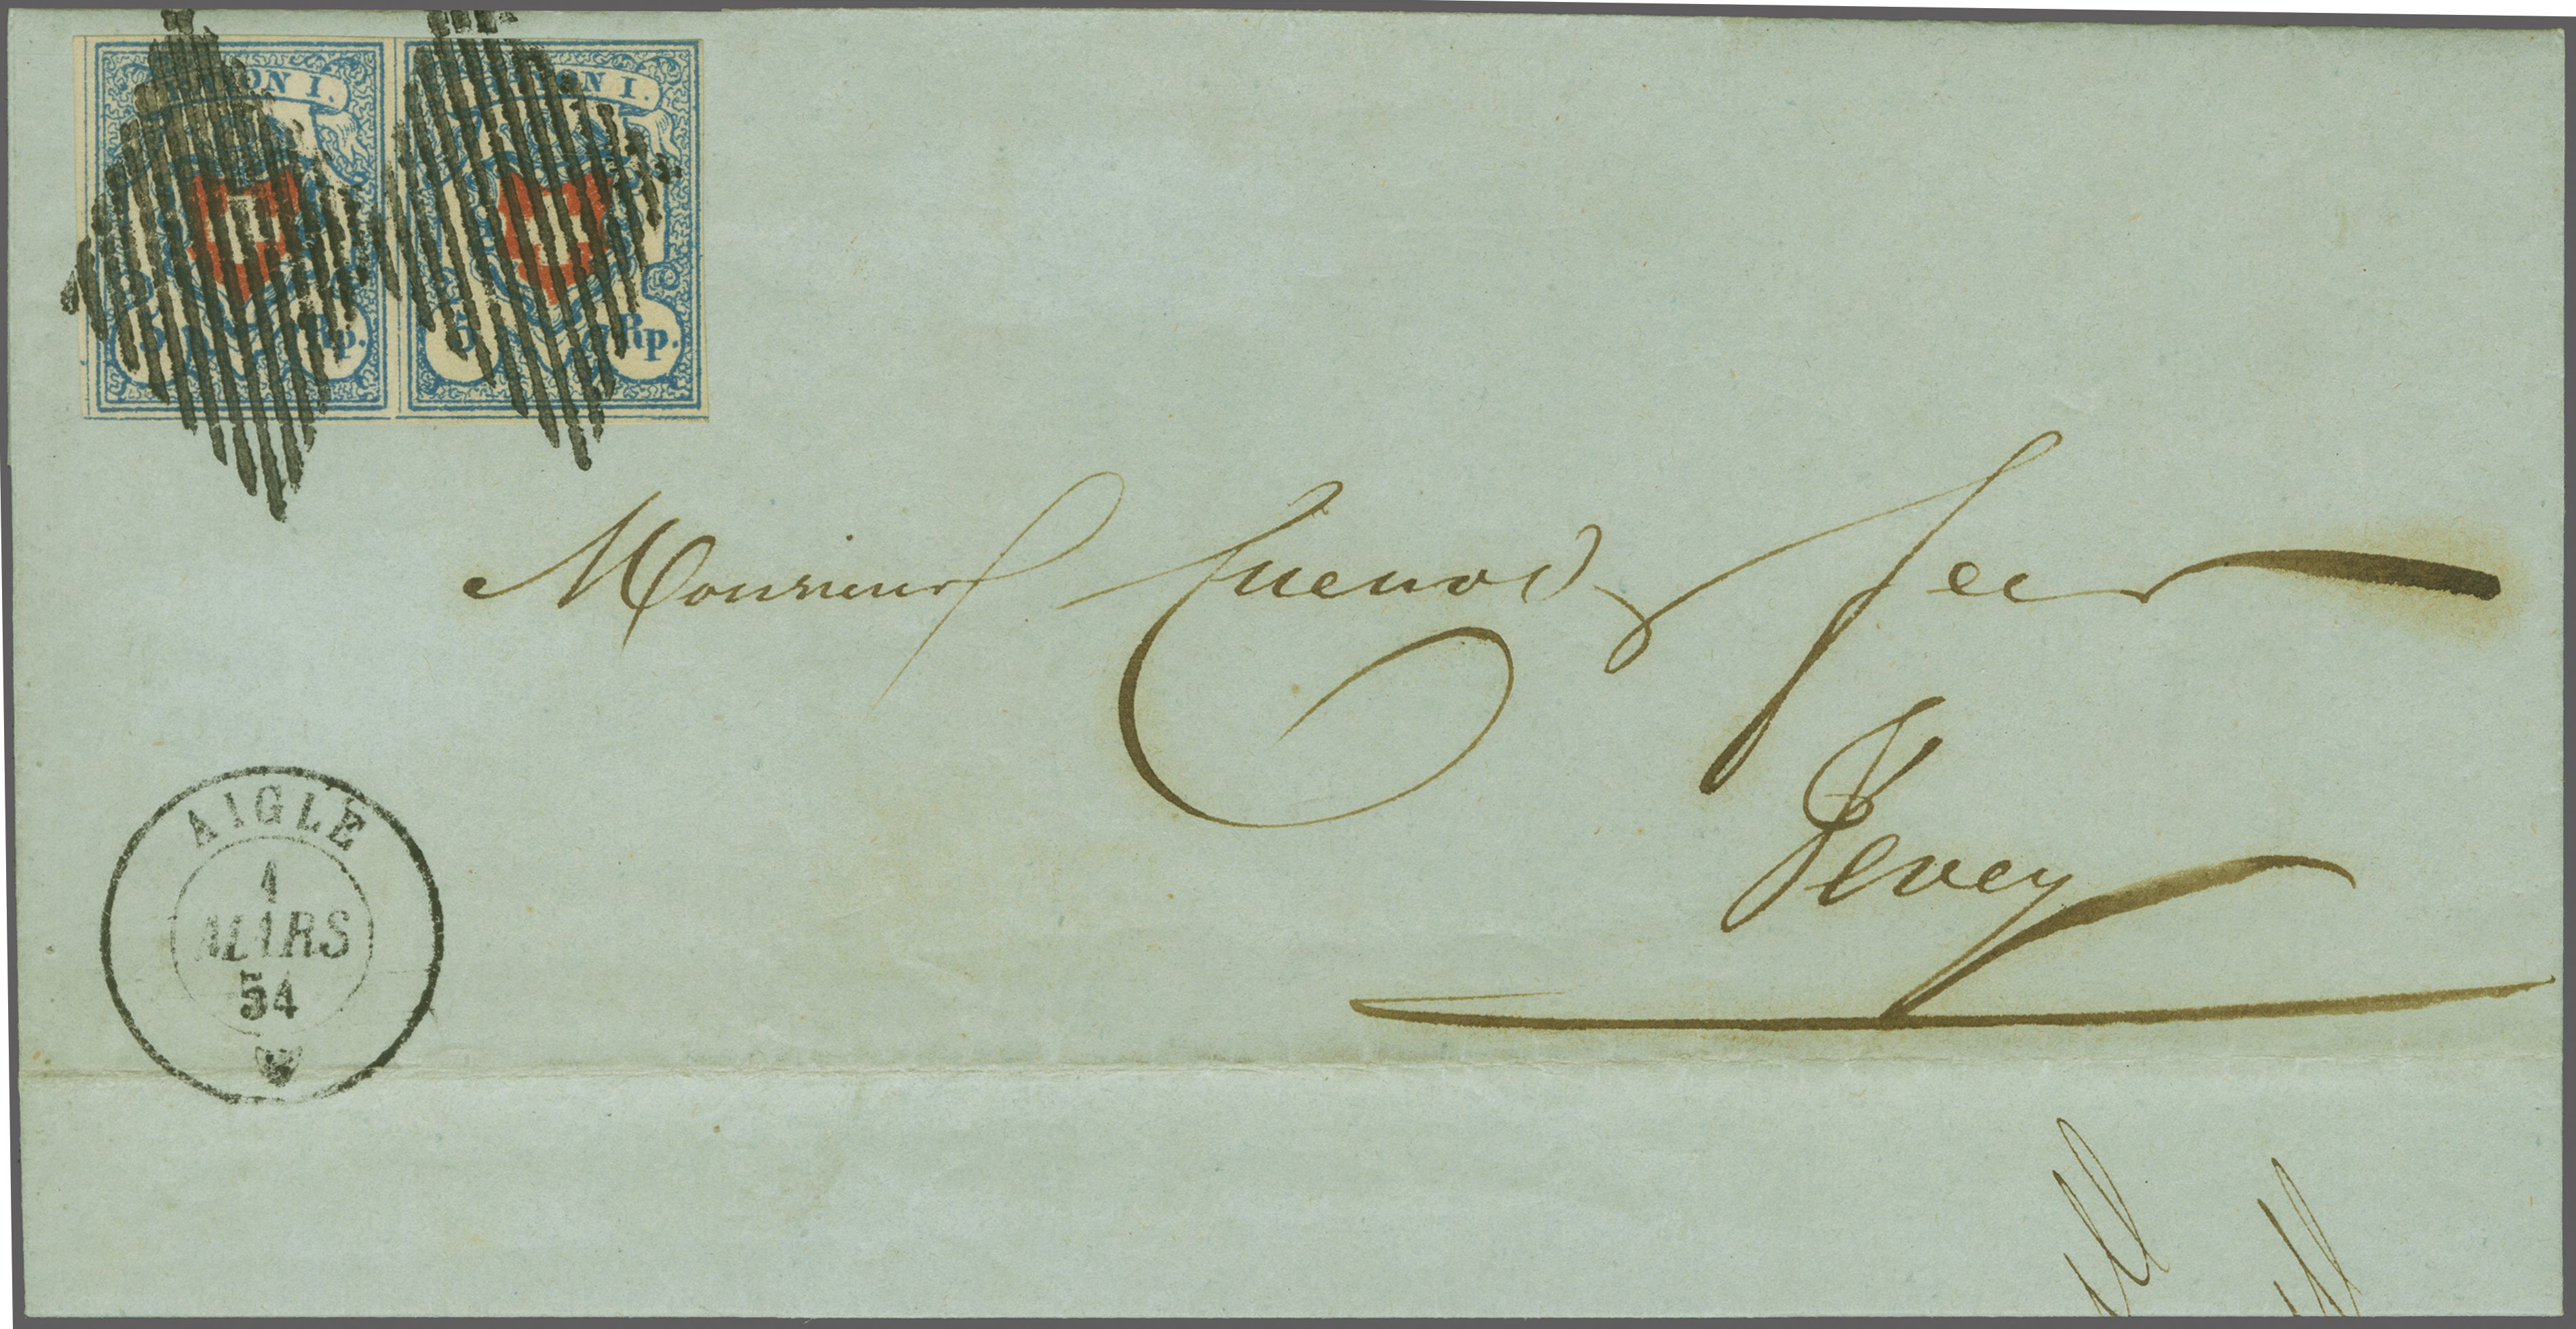 RAYON I. RAYON I.
5 Rp. 5 Rp.
Monsieur Cuenod
Vevey
AIGLE
1
MARS
54